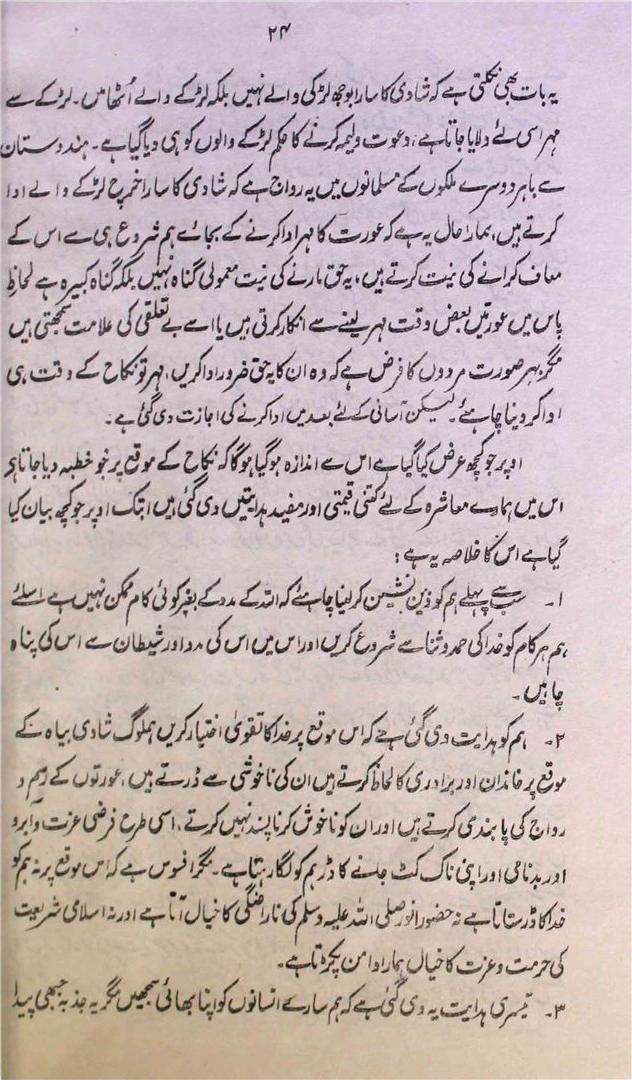 ۲۴
یہ بات بھی نکلتی ہے کہ شادی کا سارا بوجھ لڑکی والے نہیں بلکہ لڑکے والے اُٹھائیں۔ لڑکے سے
مہر اسی لئے دلایا جاتا ہے، دعوت ولیمہ کرنے کا حکم لڑکے والوں کو ہی دیا گیا ہے۔ ہندوستان
سے باہر دوسرے ملکوں کے مسلمانوں میں یہ رواج ہے کہ شادی کا سارا خرچ لڑکے والے ادا
کرتے ہیں، ہمارا حال یہ ہے کہ عورت کا مہر ادا کرنے کے بجائے ہم شروع ہی سے اس کے
معاف کرانے کی نیت کرتے ہیں، یہ حق مارنے کی نیت معمولی گناہ نہیں بلکہ گناہ کبیرہ ہے لحاظ
پاس میں عورتیں بعض وقت مہر لینے سے انکار کرتی ہیں یا اسے بے تعلقی کی علامت سمجھتی ہیں
مگر بہر صورت مردوں کا فرض ہے کہ وہ ان کا یہ حق ضرور ادا کریں، مہر تو نکاح کے وقت ہی
ادا کر دینا چاہئے۔ لیکن آسانی کے لئے بعد میں ادا کرنے کی اجازت دی گئی ہے۔
اوپر جو کچھ عرض کیا گیا ہے اس سے اندازہ ہو گیا ہوگا کہ نکاح کے موقع پر جو خطبہ دیا جاتا ہے
اس میں ہمارے معاشرہ کے لئے کتنی قیمتی اور مفید ہدایتیں دی گئی ہیں ابتک اوپر جو کچھ بیان کیا
گیا ہے اس کا خلاصہ یہ ہے:
۱۔ سب سے پہلے ہم کو ذہن نشین کر لینا چاہئے کہ اللہ کے مدد کے بغیر کوئی کام ممکن نہیں ہے اسلئے
ہم ہر کام کو خدا کی حمد و ثنا سے شروع کریں اور اس میں اس کی مدد اور شیطان سے اس کی پناہ
چاہیں۔
۲۔ ہم کو ہدایت دی گئی ہے کہ اس موقع پر خدا کا تقویٰ اختیار کریں ہملوگ شادی بیاہ کے
موقع پر خاندان اور برادری کا لحاظ کرتے ہیں ان کی ناخوشی سے ڈرتے ہیں، عورتوں کے رسم و
رواج کی پابندی کرتے ہیں اور ان کو ناخوش کرنا پسند نہیں کرتے، اسی طرح فرضی عزت و آبرو
اور بدنامی اور اپنی ناک کٹ جانے کا ڈر ہم کو لگا رہتا ہے۔ مگر افسوس ہے کہ اس موقع پر نہ ہم کو
خدا کا ڈر ستاتا ہے نہ حضور انور صلی اللہ علیہ وسلم کی ناراضگی کا خیال آتا ہے اور نہ اسلامی شریعت
کی حرمت و عزت کا خیال ہمارا دامن پکڑتا ہے۔
۳۔ تیسری ہدایت یہ دی گئی ہے کہ ہم سارے انسانوں کو اپنا بھائی سمجھیں مگر یہ جذبہ جبھی پیدا